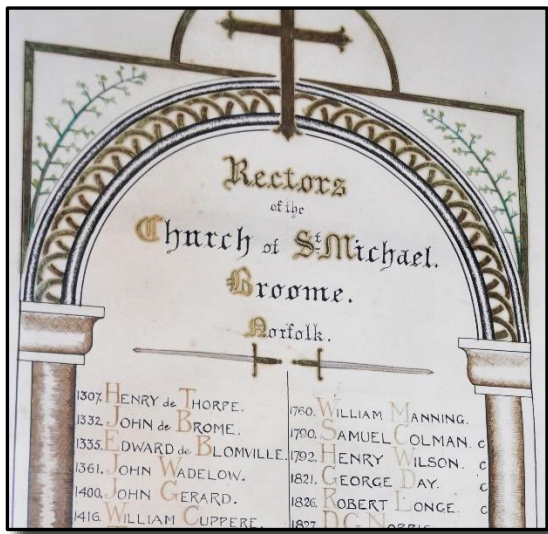 Rectors
of the
Church of St. Michael.
Broome.
Norfolk.
1307. HENRY de THORPE.
1332. JOHN de BROME.
1335. EDWARD de BLOMVILLE.
1361. JOHN WADELOW.
1400. JOHN GERARD.
1416. WILLIAM CUPPERE.
1760. WILLIAM MANNING.
1790. SAMUEL COLMAN. c
1792. HENRY WILSON. c
1821. GEORGE DAY. c
1826. ROBERT LONGE. c
1827. D.G. NORRIS